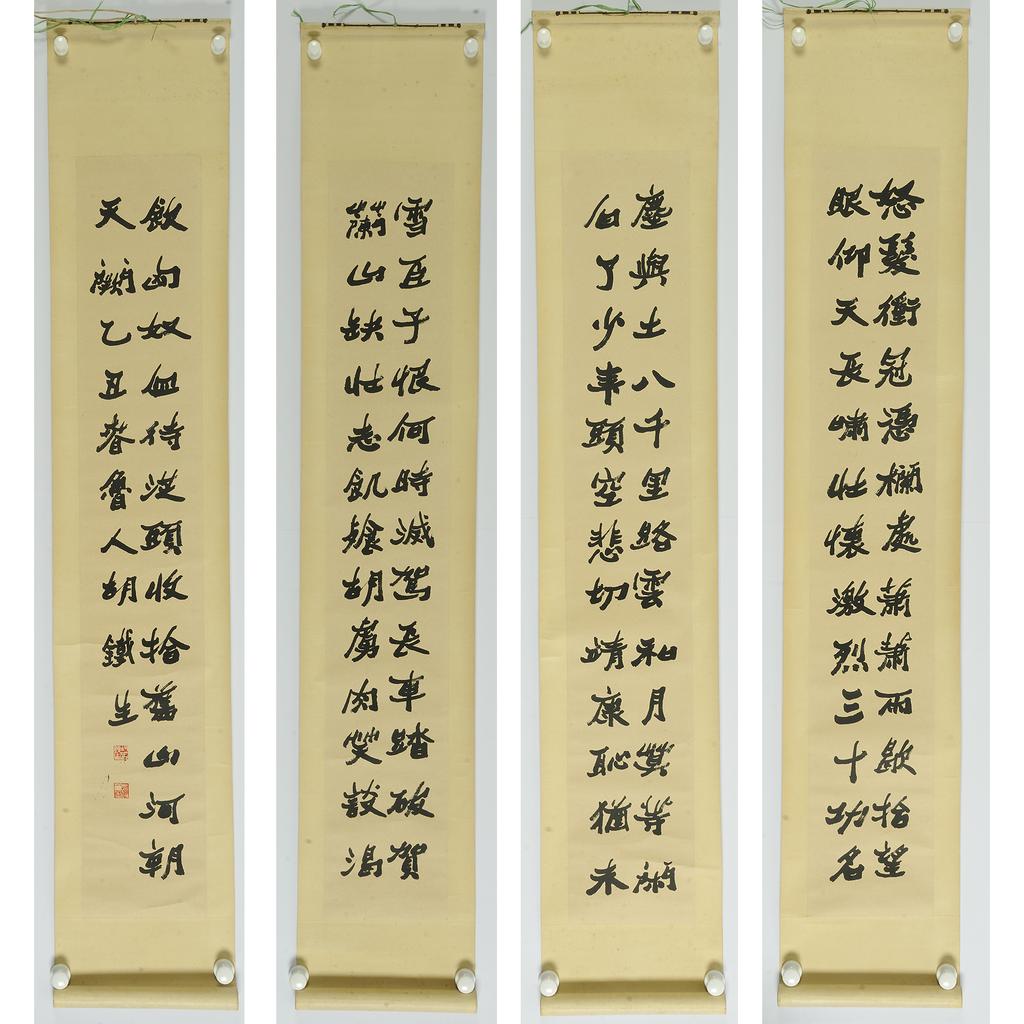 怒髮衝冠憑欄處蕭蕭雨歇抬望
眼仰天長嘯壯懷激烈三十功名
塵與土八千里路雲和月莫等閒
白了少年頭空悲切靖康恥猶未
雪臣子恨何時滅駕長車踏破賀
蘭山缺壯志飢飧胡虜肉笑談渴
飲匈奴血待從頭收拾舊山河朝
天闕乙丑春魯人胡鐵生